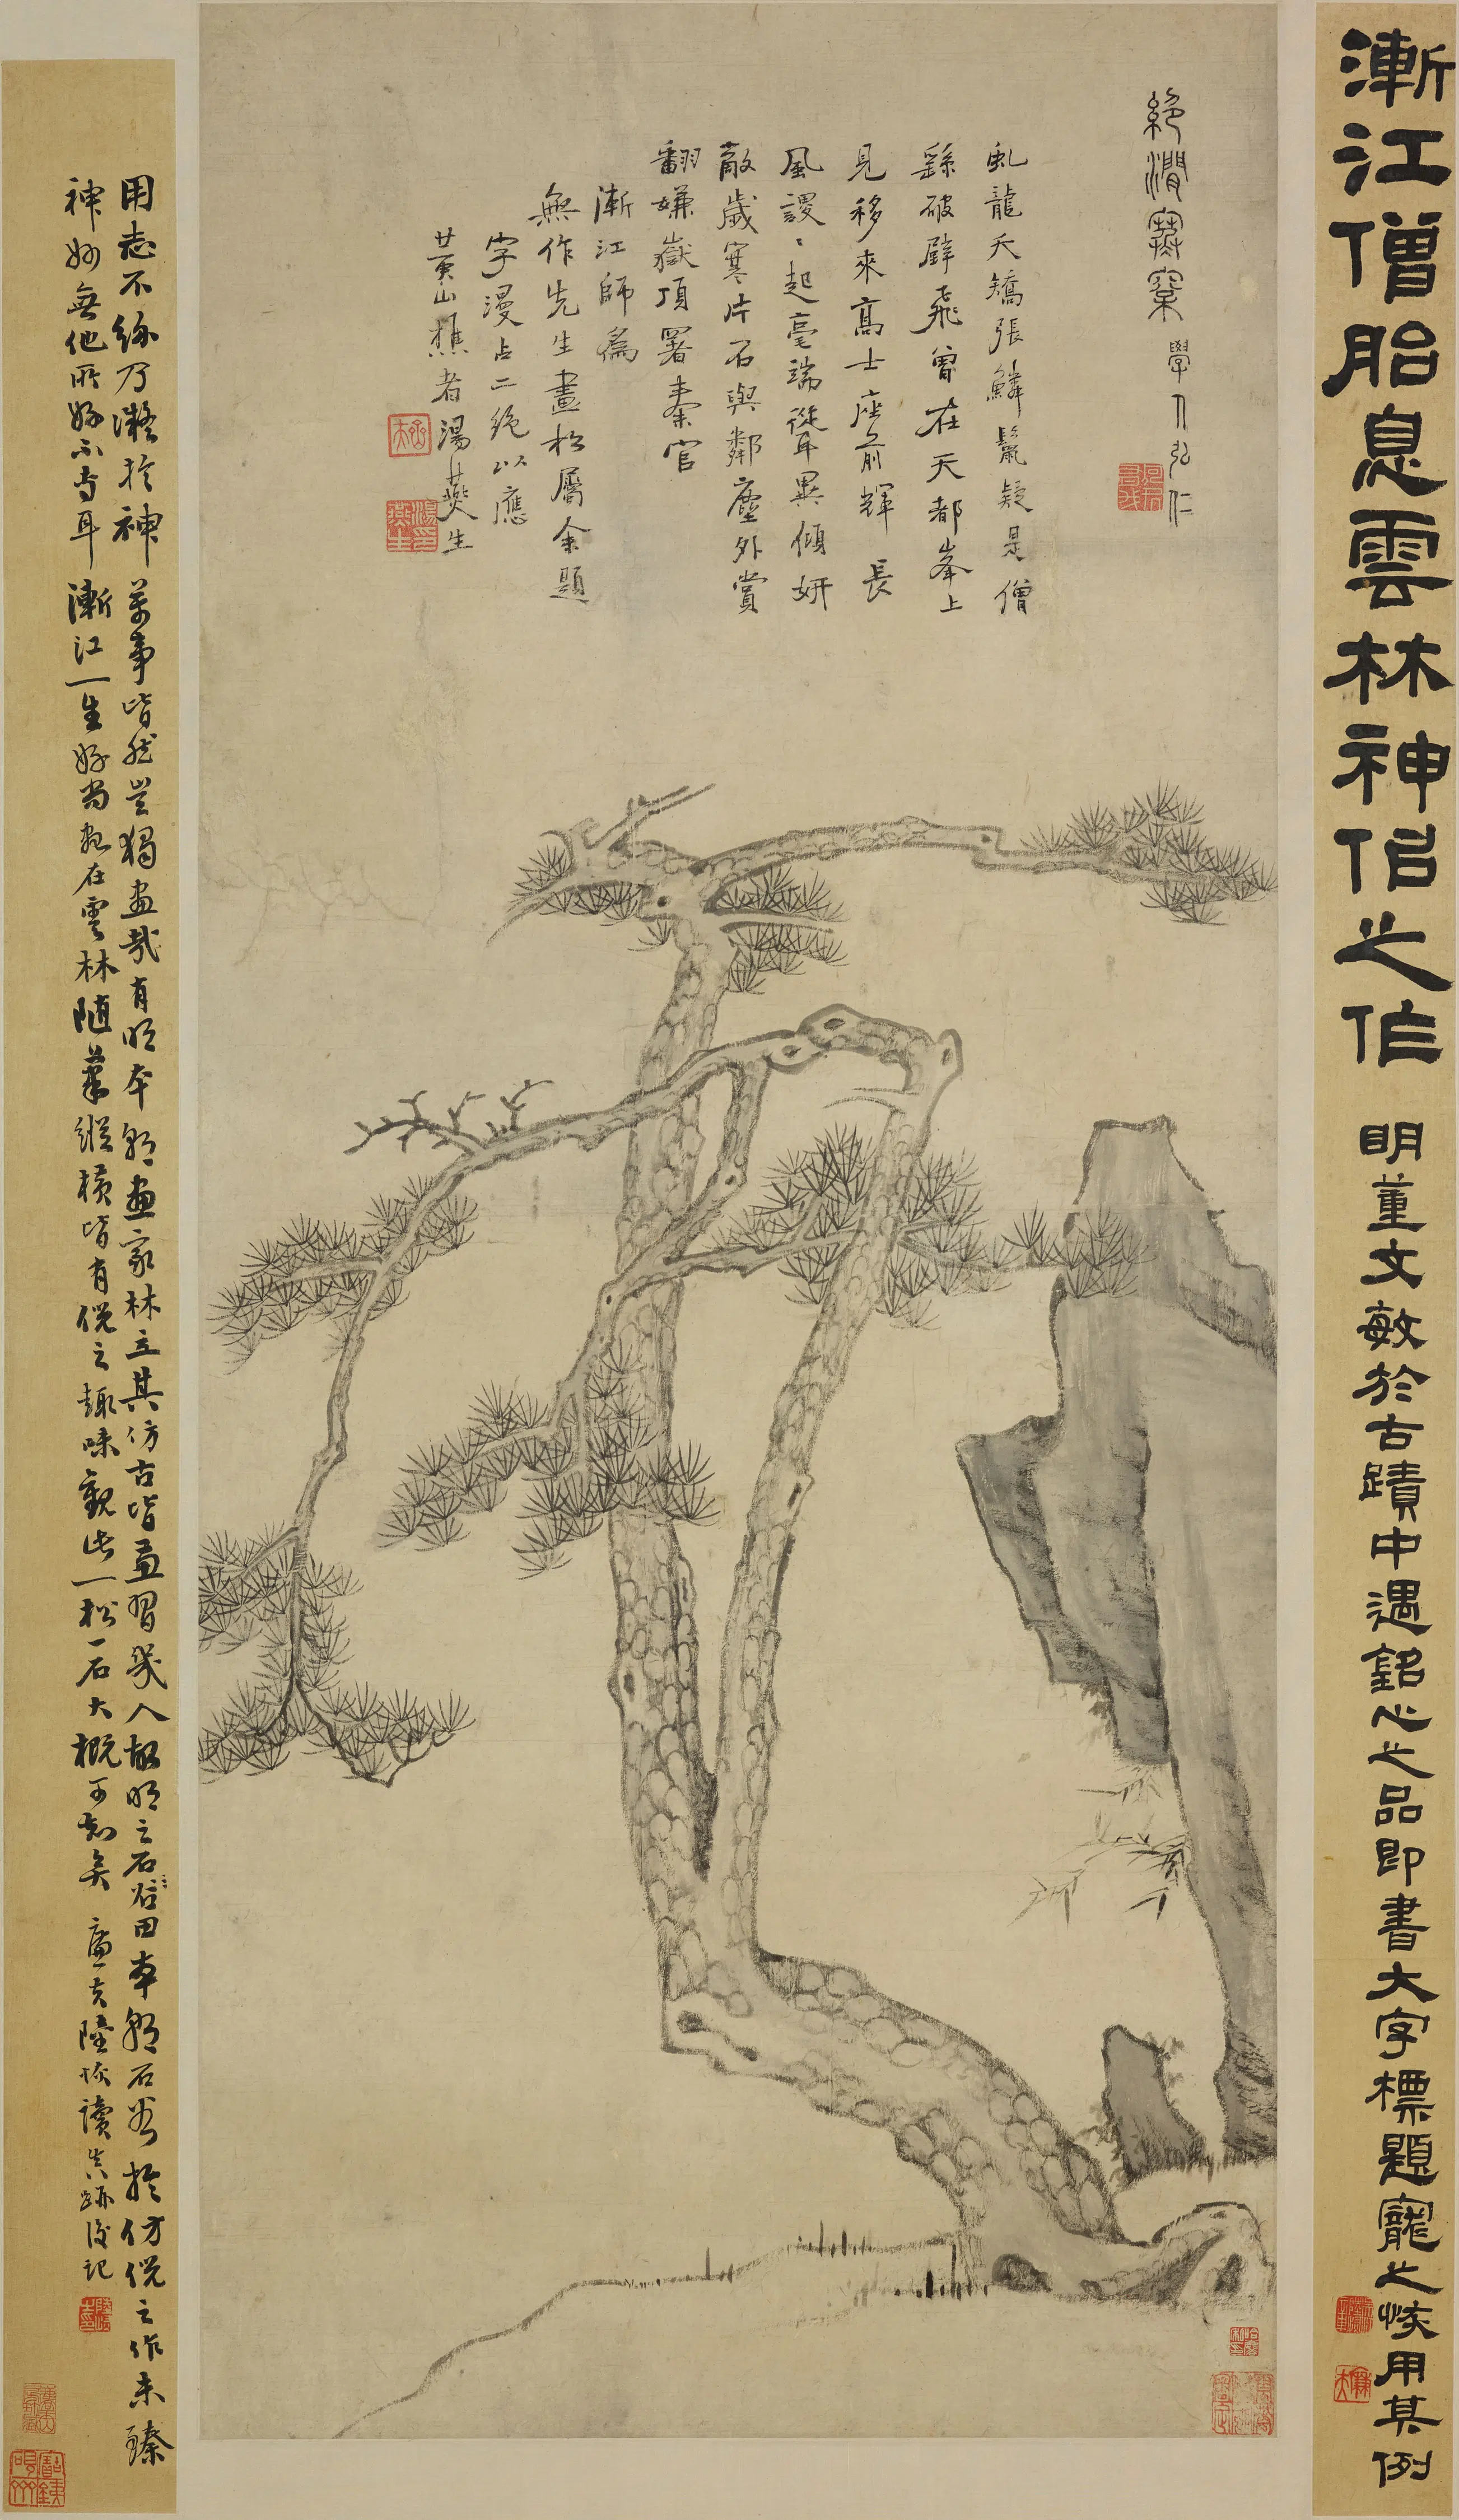 漸江僧胎息雲林神侣之作
明董文敏於古蹟中遇銘心之品即書大字標題寵之恢用其例
絕澗寒窠 學人弘仁
虬龍夭矯張鱗鬣疑是僧
繇破壁飛曾在天都峯上
見移來髙士座前輝 長
風謖〻起毫端從耳異傾妍
敵歲寒片石與鄰塵外賞
翻嫌嶽頂署秦官
漸江師為
無作先生畫松屬余題
字漫占二絶以應
黄山樵者湯燕生
用志不紛乃凝於神 萬事皆然豈獨畫哉有明本朝畫家林立其仿古皆画習幾人故明之石田本朝石谷於仿倪之作未臻
神妙無他所好不専耳 漸江一生好尚想在雲林隨筆縱橫皆有倪之趣味觀此一松一石大概可知矣 廉夫陸恢讀真跡後記